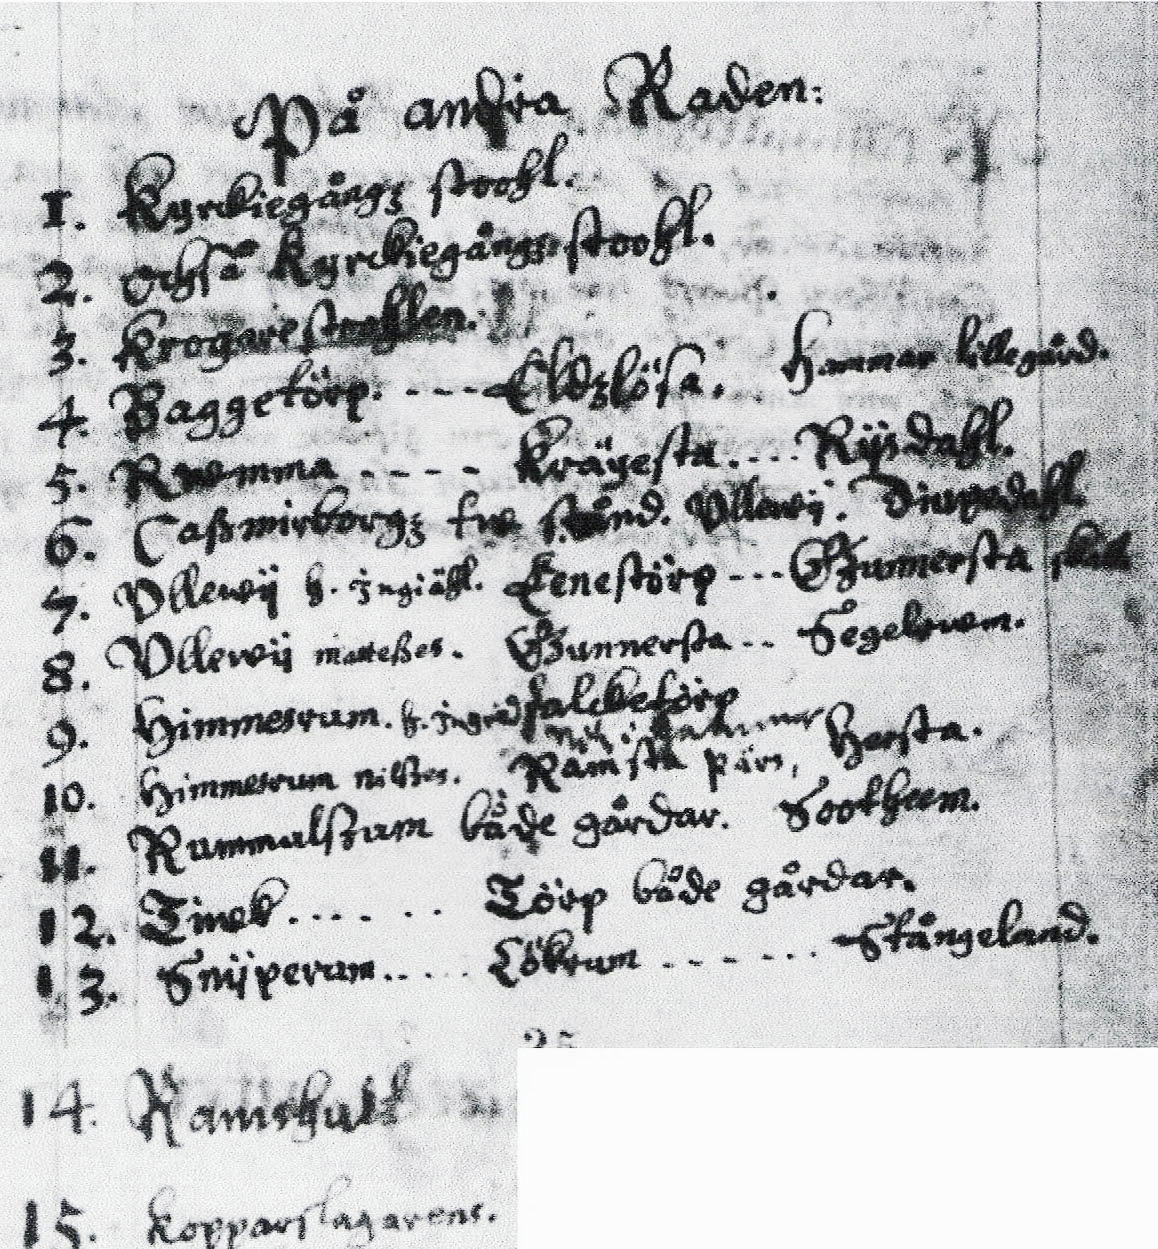 På andra Raden:
1. Kyrckiegångz stoohl.
2. Ochså Kyrckiegångz stoohl.
3. Krogarestoohlen.
4. Baggetörp. ---- Eldzlösa. Hammar lillegård.
5. Rwemma ---- Krägesta.... Rijsdahl.
6. Caßmirborgz tw stånd. Ullewij. Diupedahl.
7. Ullewij h. Ingiähl. Lenestörp --- Gunnersta
8. Ullewij matteßes. Gunnersta... Segelrwm.
9. Himmesrum. h. Ingrid falcketörp
10. Himmesrum nilßes. Ramsta pärs, Hersta.
11. Rummulstum både gårdar. Sootheem.
12. Tinek...... Törp både gårdar.
13. Snijperum..... Lökrum ...... Stångeland.
25
14. Ramshult
15. Kopparslagarens.